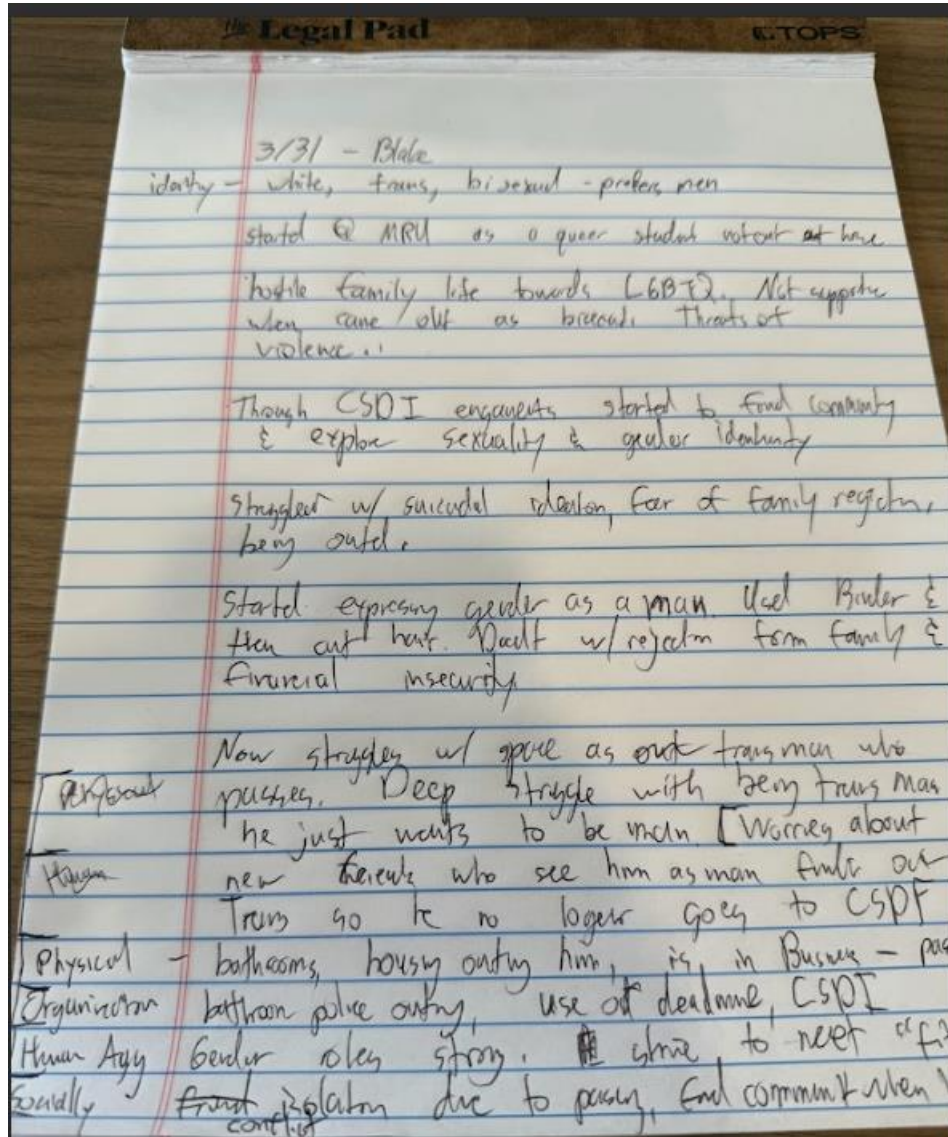 the Legal Pad
TOPS
3/31 - Blake
identity - white, trans, bisexual - prefers men
startd @ MRU as a queer student not out at home
hostile family life towards LGBTQ. Not supportive
when came out as bisexual. Threats of
violence..
Through CSDI started to find community
& explore sexuality & gender identity
struggled w/ suicidal ideation, fear of family rejectn,
being outd.
Startd expressing gender as a man. Used Binder &
then cut hair. Dealt w/ rejectn form family &
financial insecurity
Now struggles w/ space as out trans man who
passes. Deep struggle with being trans man
he just wants to be man [Worries about
Human new who see him as man find out
Trans so he no loger goes to CSDI
Physical - bathrooms, housing outing him, is in Business - pas
Organization bathroom police outing, use of deadname, CSDI
Human Agg Gender roles strong. to meet "fi
Socially isolation due to passing, find communit when
conflict